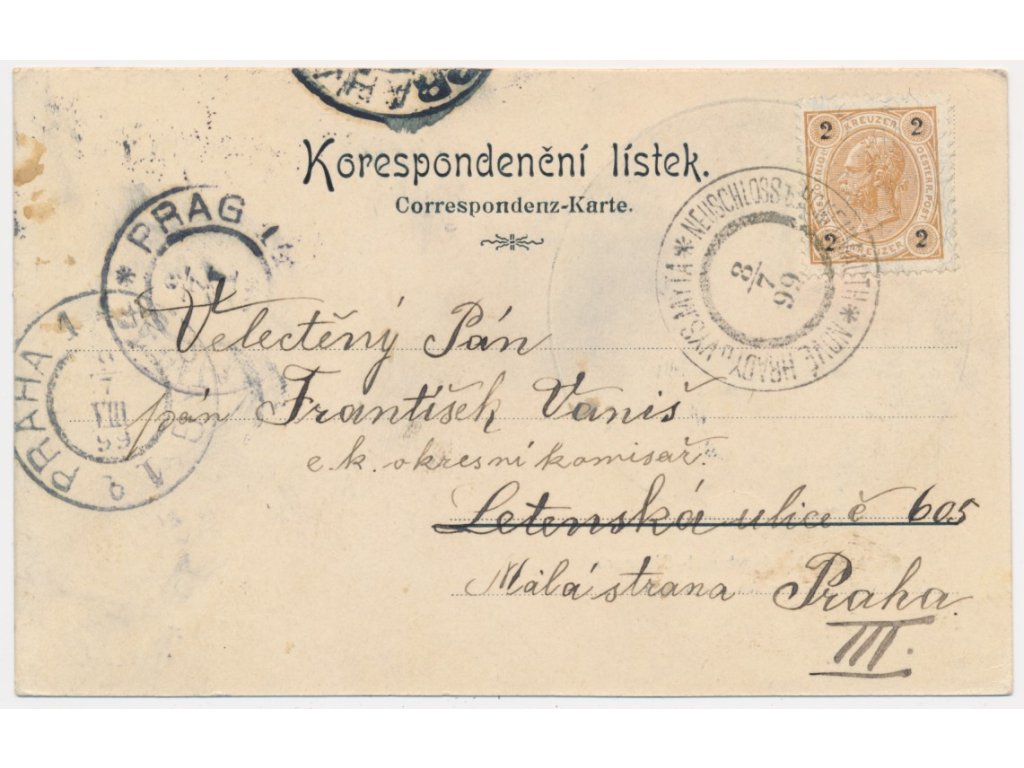 PRAHY
Korespondenční lístek.
Correspondenz-Karte.
2 KREUZER 2
OESTERR. POST.
2 KREUZER 2
NEUSCHLOSS * NOVÉ HRADY u VYS. MÝTA *
8/7 99
* PRAG
PRAHA 1
VIII
99
Velectěný Pán
pán František Vaniš
c. k. okresní komisař.
Letenská ulice č 605
Malá strana Praha
III.